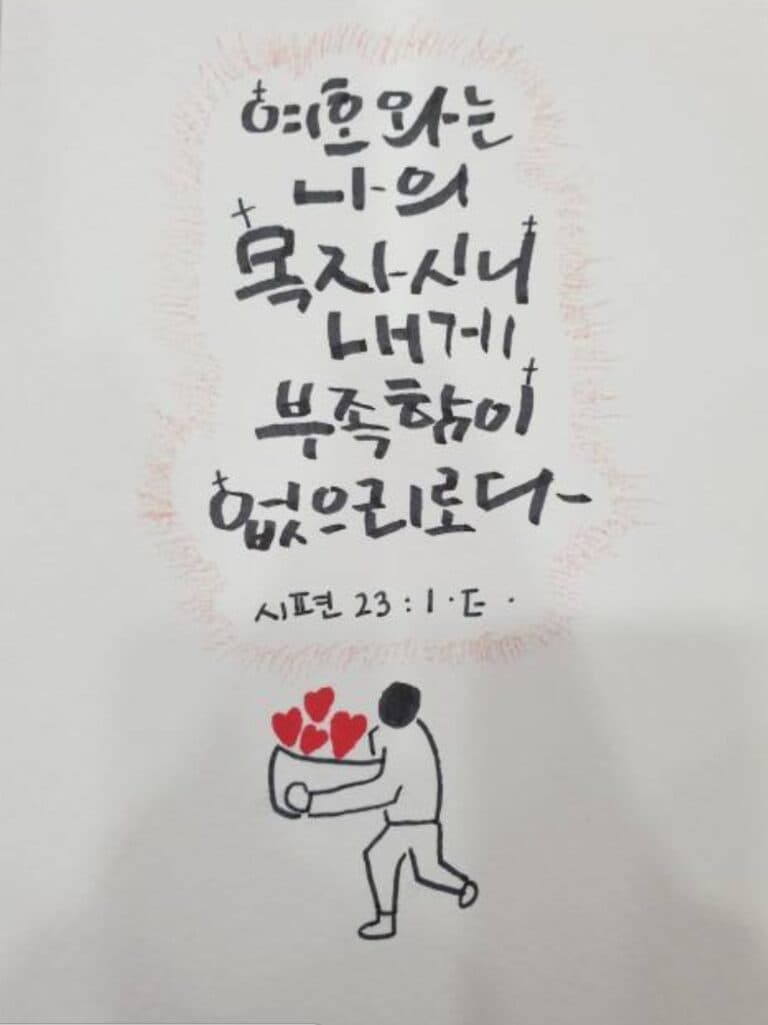 여호와는
나의
목자시니
내게
부족함이
없으리로다
시편 23:1·E·